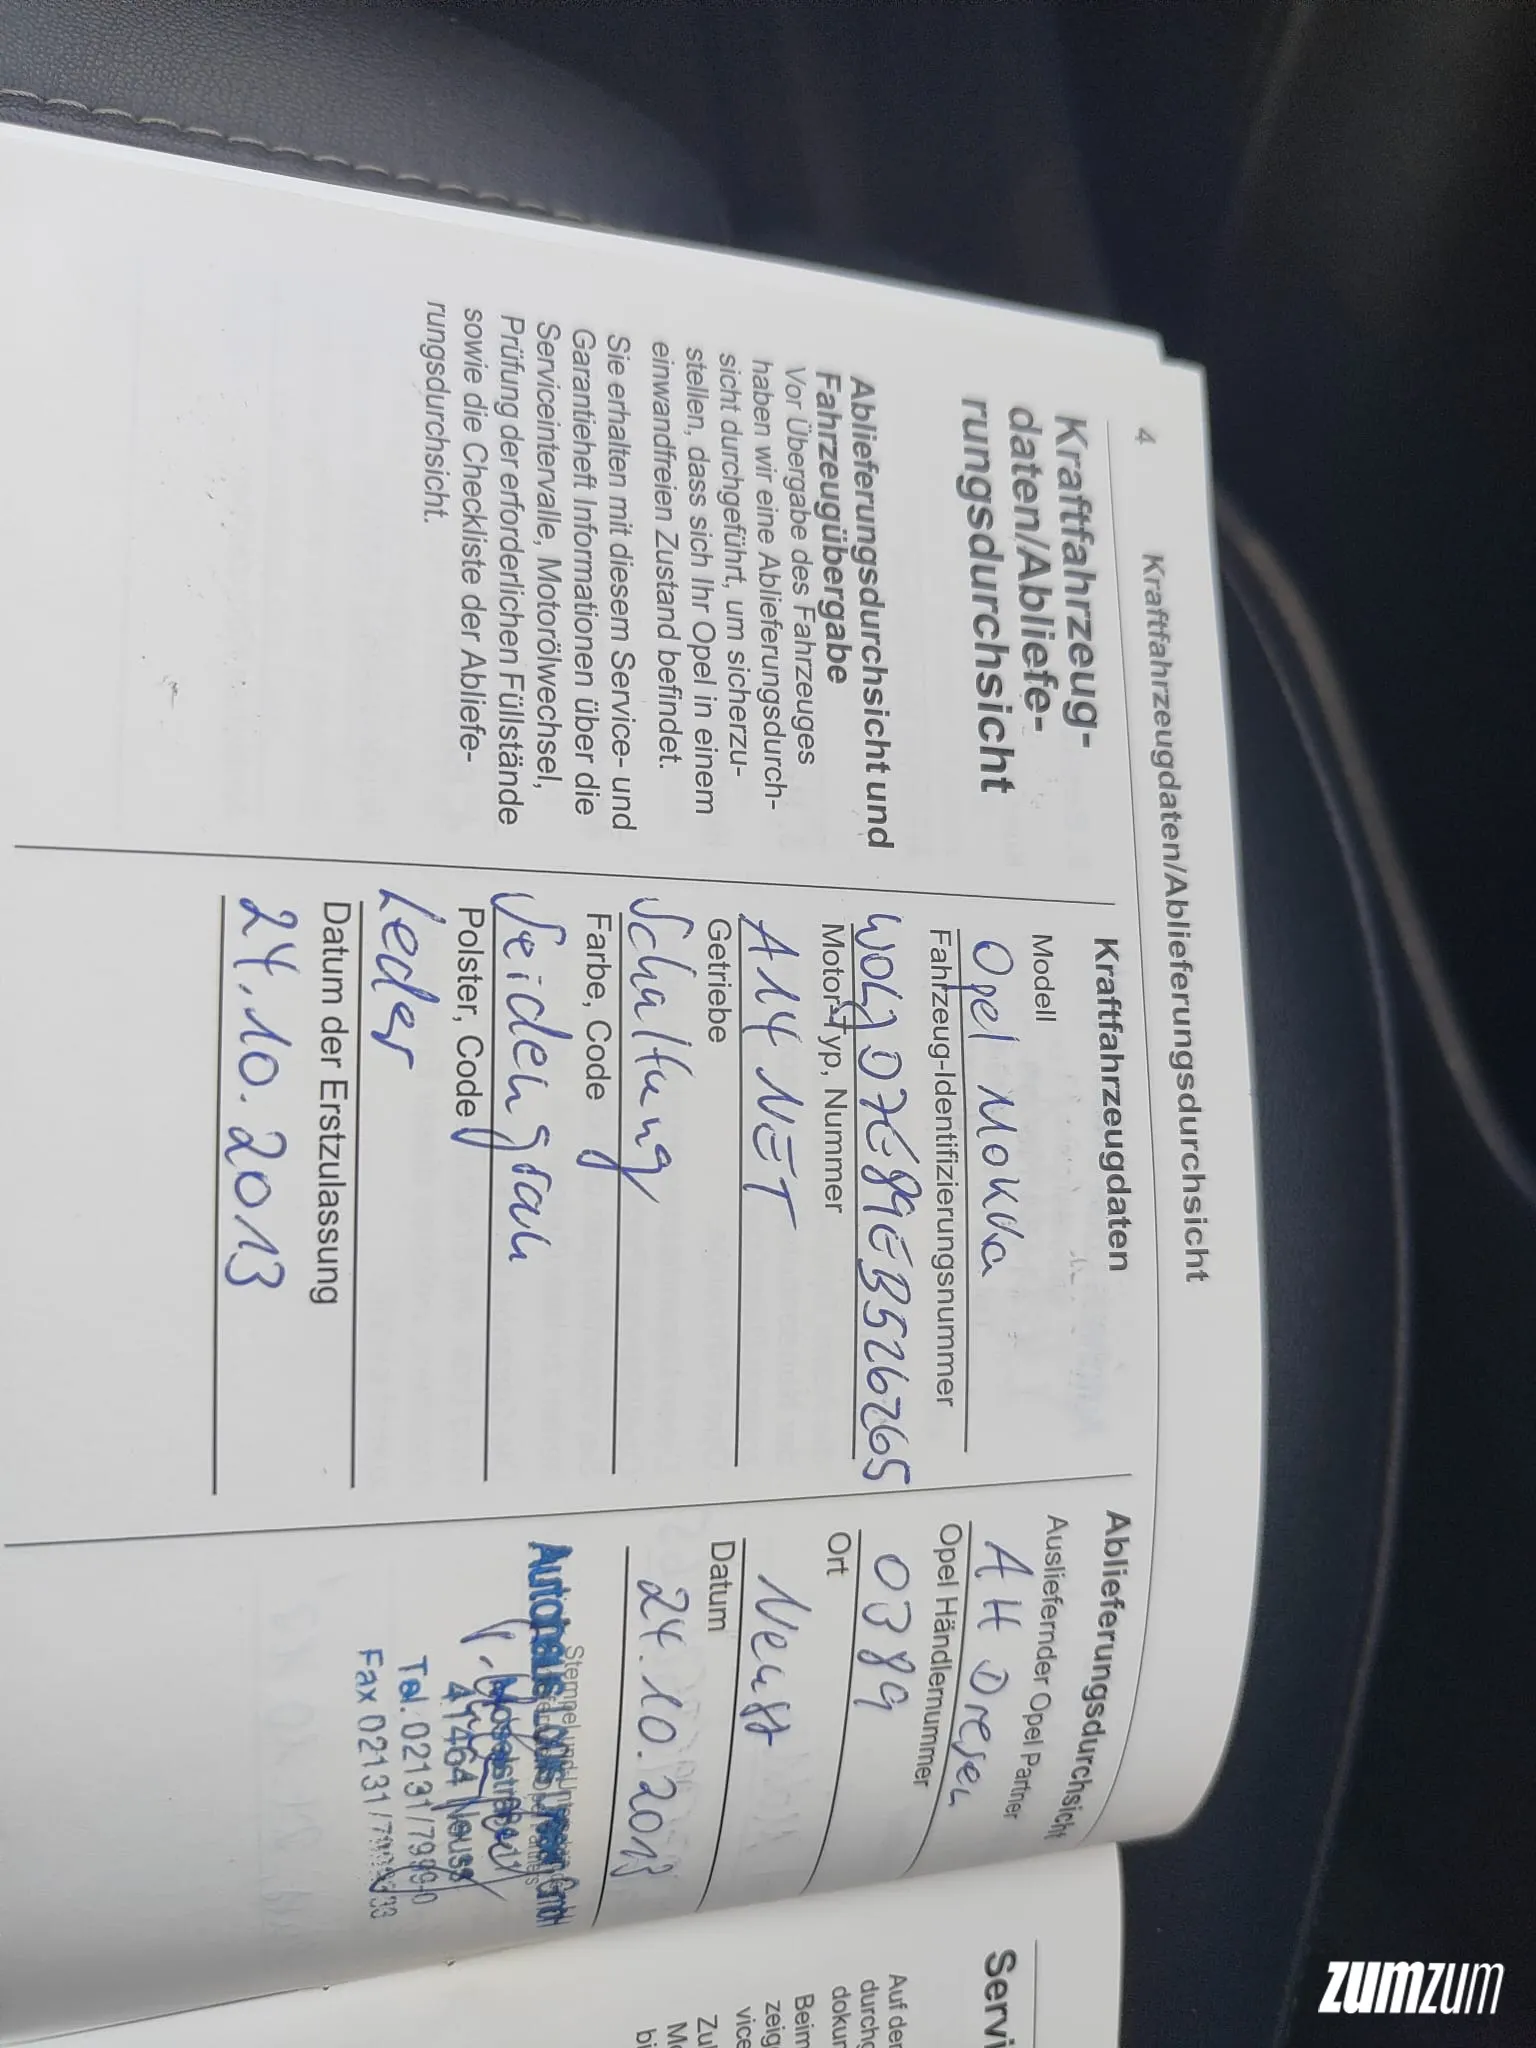 4
Kraftfahrzeugdaten/Ablieferungsdurchsicht
Kraftfahrzeug-
daten/Abliefe-
rungsdurchsicht
Ablieferungsdurchsicht und
Fahrzeugübergabe
Vor Übergabe des Fahrzeuges
haben wir eine Ablieferungsdurch-
sicht durchgeführt, um sicherzu-
stellen, dass sich Ihr Opel in einem
einwandfreien Zustand befindet.
Sie erhalten mit diesem Service- und
Garantieheft Informationen über die
Serviceintervalle, Motorölwechsel,
Prüfung der erforderlichen Füllstände
sowie die Checkliste der Abliefe-
rungsdurchsicht.
Kraftfahrzeugdaten
Modell
Opel Mokka
Fahrzeug-Identifizierungsnummer
W0LJD7E89EB526265
Motor-Typ, Nummer
A14 NET
Getriebe
Schaltung
Farbe, Code
Seidengrau
Polster, Code
Leder
Datum der Erstzulassung
24.10.2013
Ablieferungsdurchsicht
Ausliefernder Opel Partner
AH Dresen
Opel Händlernummer
0389
Ort
Neuss
Datum
24.10.2013
Stempel und
Autohaus GmbH
Moselstraße 11
41464 Neuss
Tel. 02131/7989-0
Fax 02131/
Servi
Auf der
durchg
dokun
Beim
zeig
vice
Zul
Mo
bi
zumzum